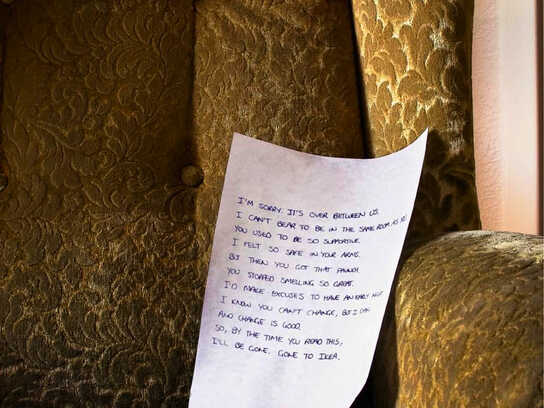 I'M SORRY. IT'S OVER BETWEEN US.
I CAN'T BEAR TO BE IN THE SAME ROOM AS YOU
YOU USED TO BE SO SUPPORTIVE.
I FELT SO SAFE IN YOUR ARMS.
BUT THEN YOU GOT THAT PAUNCH.
YOU STOPPED SMELLING SO GREAT.
I'D MAKE EXCUSES TO HAVE AN EARLY NIGHT
I KNOW YOU CAN'T CHANGE, BUT I CAN
AND CHANGE IS GOOD.
SO, BY THE TIME YOU READ THIS,
I'LL BE GONE. GONE TO IKEA.